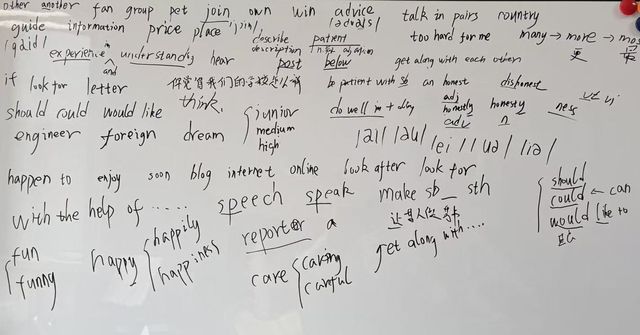 other another fan group pet join own win advice talk in pairs country
guide information price place /jɔin/
/gaid/ describe patient too hard for me many → more → most
experience in understanding hear description post below 更 最
and get along with each other
if look for letter 你觉得我们的学校怎么样 be patient with sb an honest dishonest
think
should could would like junior do well in + doing adj honestly honesty ness
engineer foreign dream medium adv n
high /aɪ/ /au/ /ei/ /uə/ /iə/
happen to enjoy soon blog internet online look after look for
with the help of ...... speech speak make sb __ sth should
could ← can
would like to
fun happy happily reporter a 让某人做某事
funny happiness care caring get along with....
careful